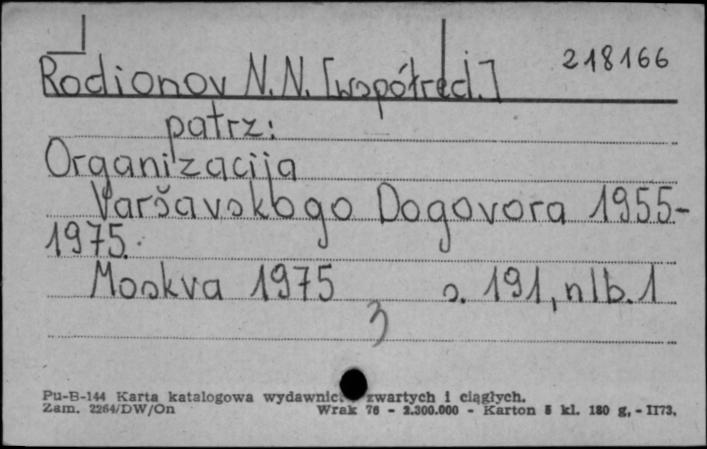 218166
Rodionov N.N. [współred.]
patrz:
Organizacija
Varšavskogo Dogovora 1955-
1975.
Moskva 1975 s. 191, nlb. 1
3
Pu-B-144 Karta katalogowa wydawnict zwartych i ciągłych.
Zam. 2264/DW/On Wrak 76 - 2.300.000 - Karton 5 kl. 180 g, - II73,